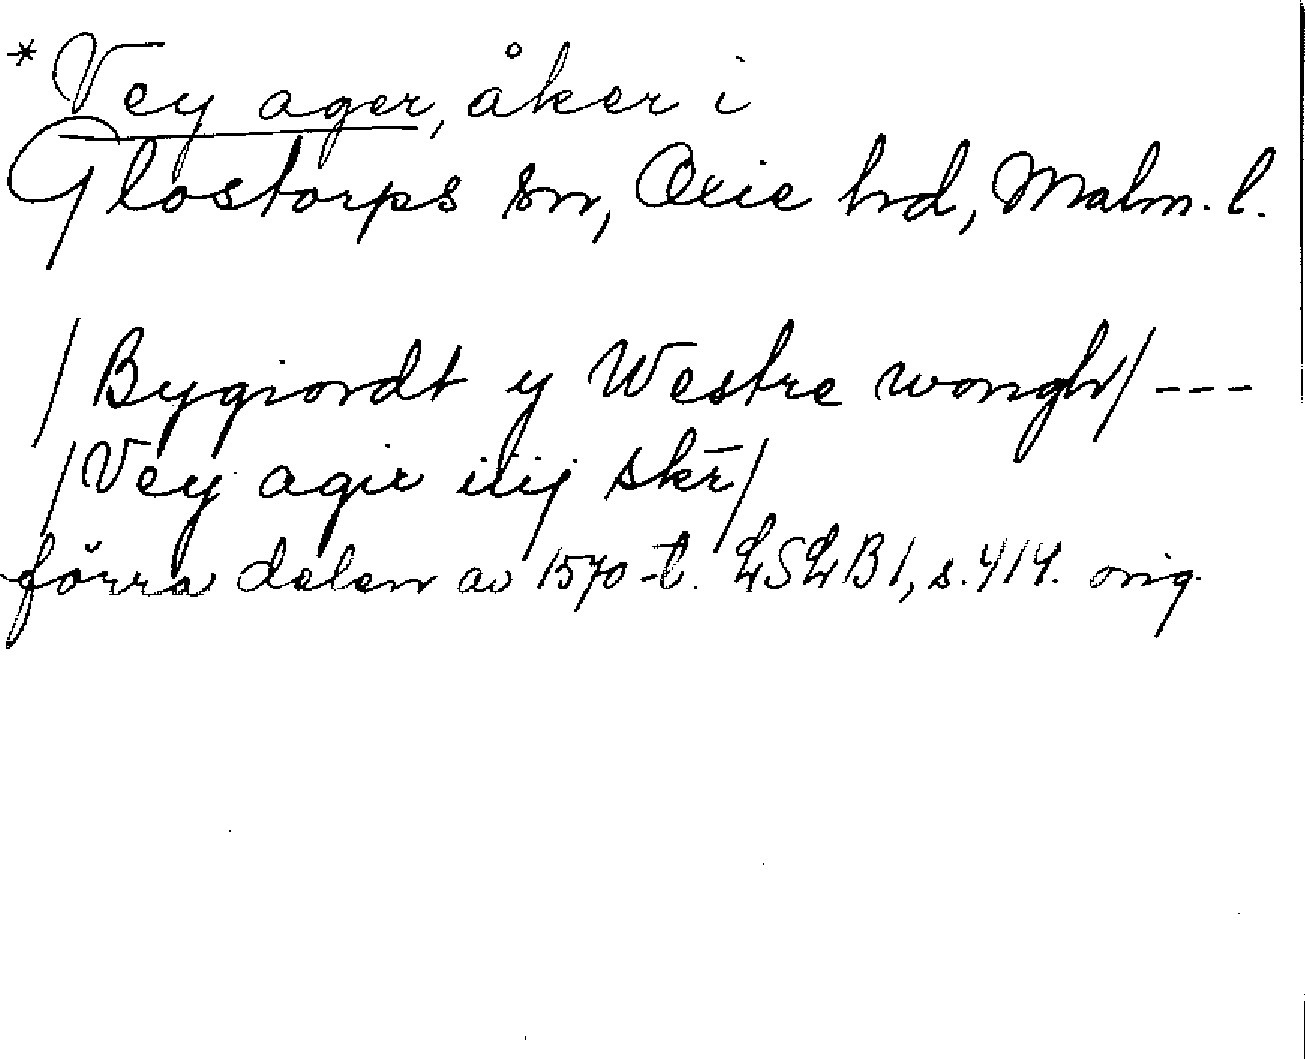 *Vey ager, åker i
Glostorps sn, Oxie hd, Malm. l.
/Bygiordt y Westre wongh/ ---
/Vey agir iiij skr̄/
förra delen av 1570-t. LSLB1, s. 414. orig.